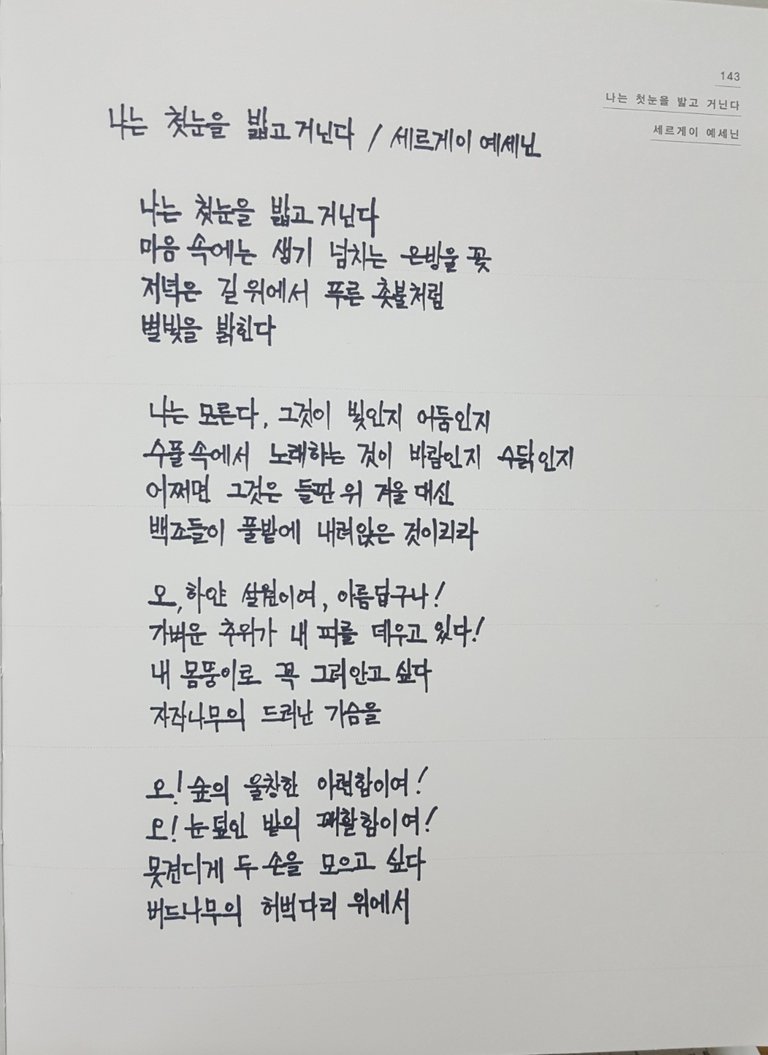 143
나는 첫눈을 밟고 거닌다
세르게이 예세닌
나는 첫눈을 밟고 거닌다 / 세르게이 예세닌
나는 첫눈을 밟고 거닌다
마음 속에는 생기 넘치는 은방울 꽃
저녁은 길 위에서 푸른 촛불처럼
별빛을 밝힌다
나는 모른다, 그것이 빛인지 어둠인지
수풀 속에서 노래하는 것이 바람인지 수탉인지
어쩌면 그것은 들판 위 겨울 대신
백조들이 풀밭에 내려앉은 것이리라
오, 하얀 설원이여, 아름답구나!
가벼운 추위가 내 피를 데우고 있다!
내 몸뚱이로 꼭 그러안고 싶다
자작나무의 드러난 가슴을
오! 숲의 울창한 아련함이여!
오! 눈 덮인 밭의 쾌활함이여!
못견디게 두 손을 모으고 싶다
버드나무의 허벅다리 위에서